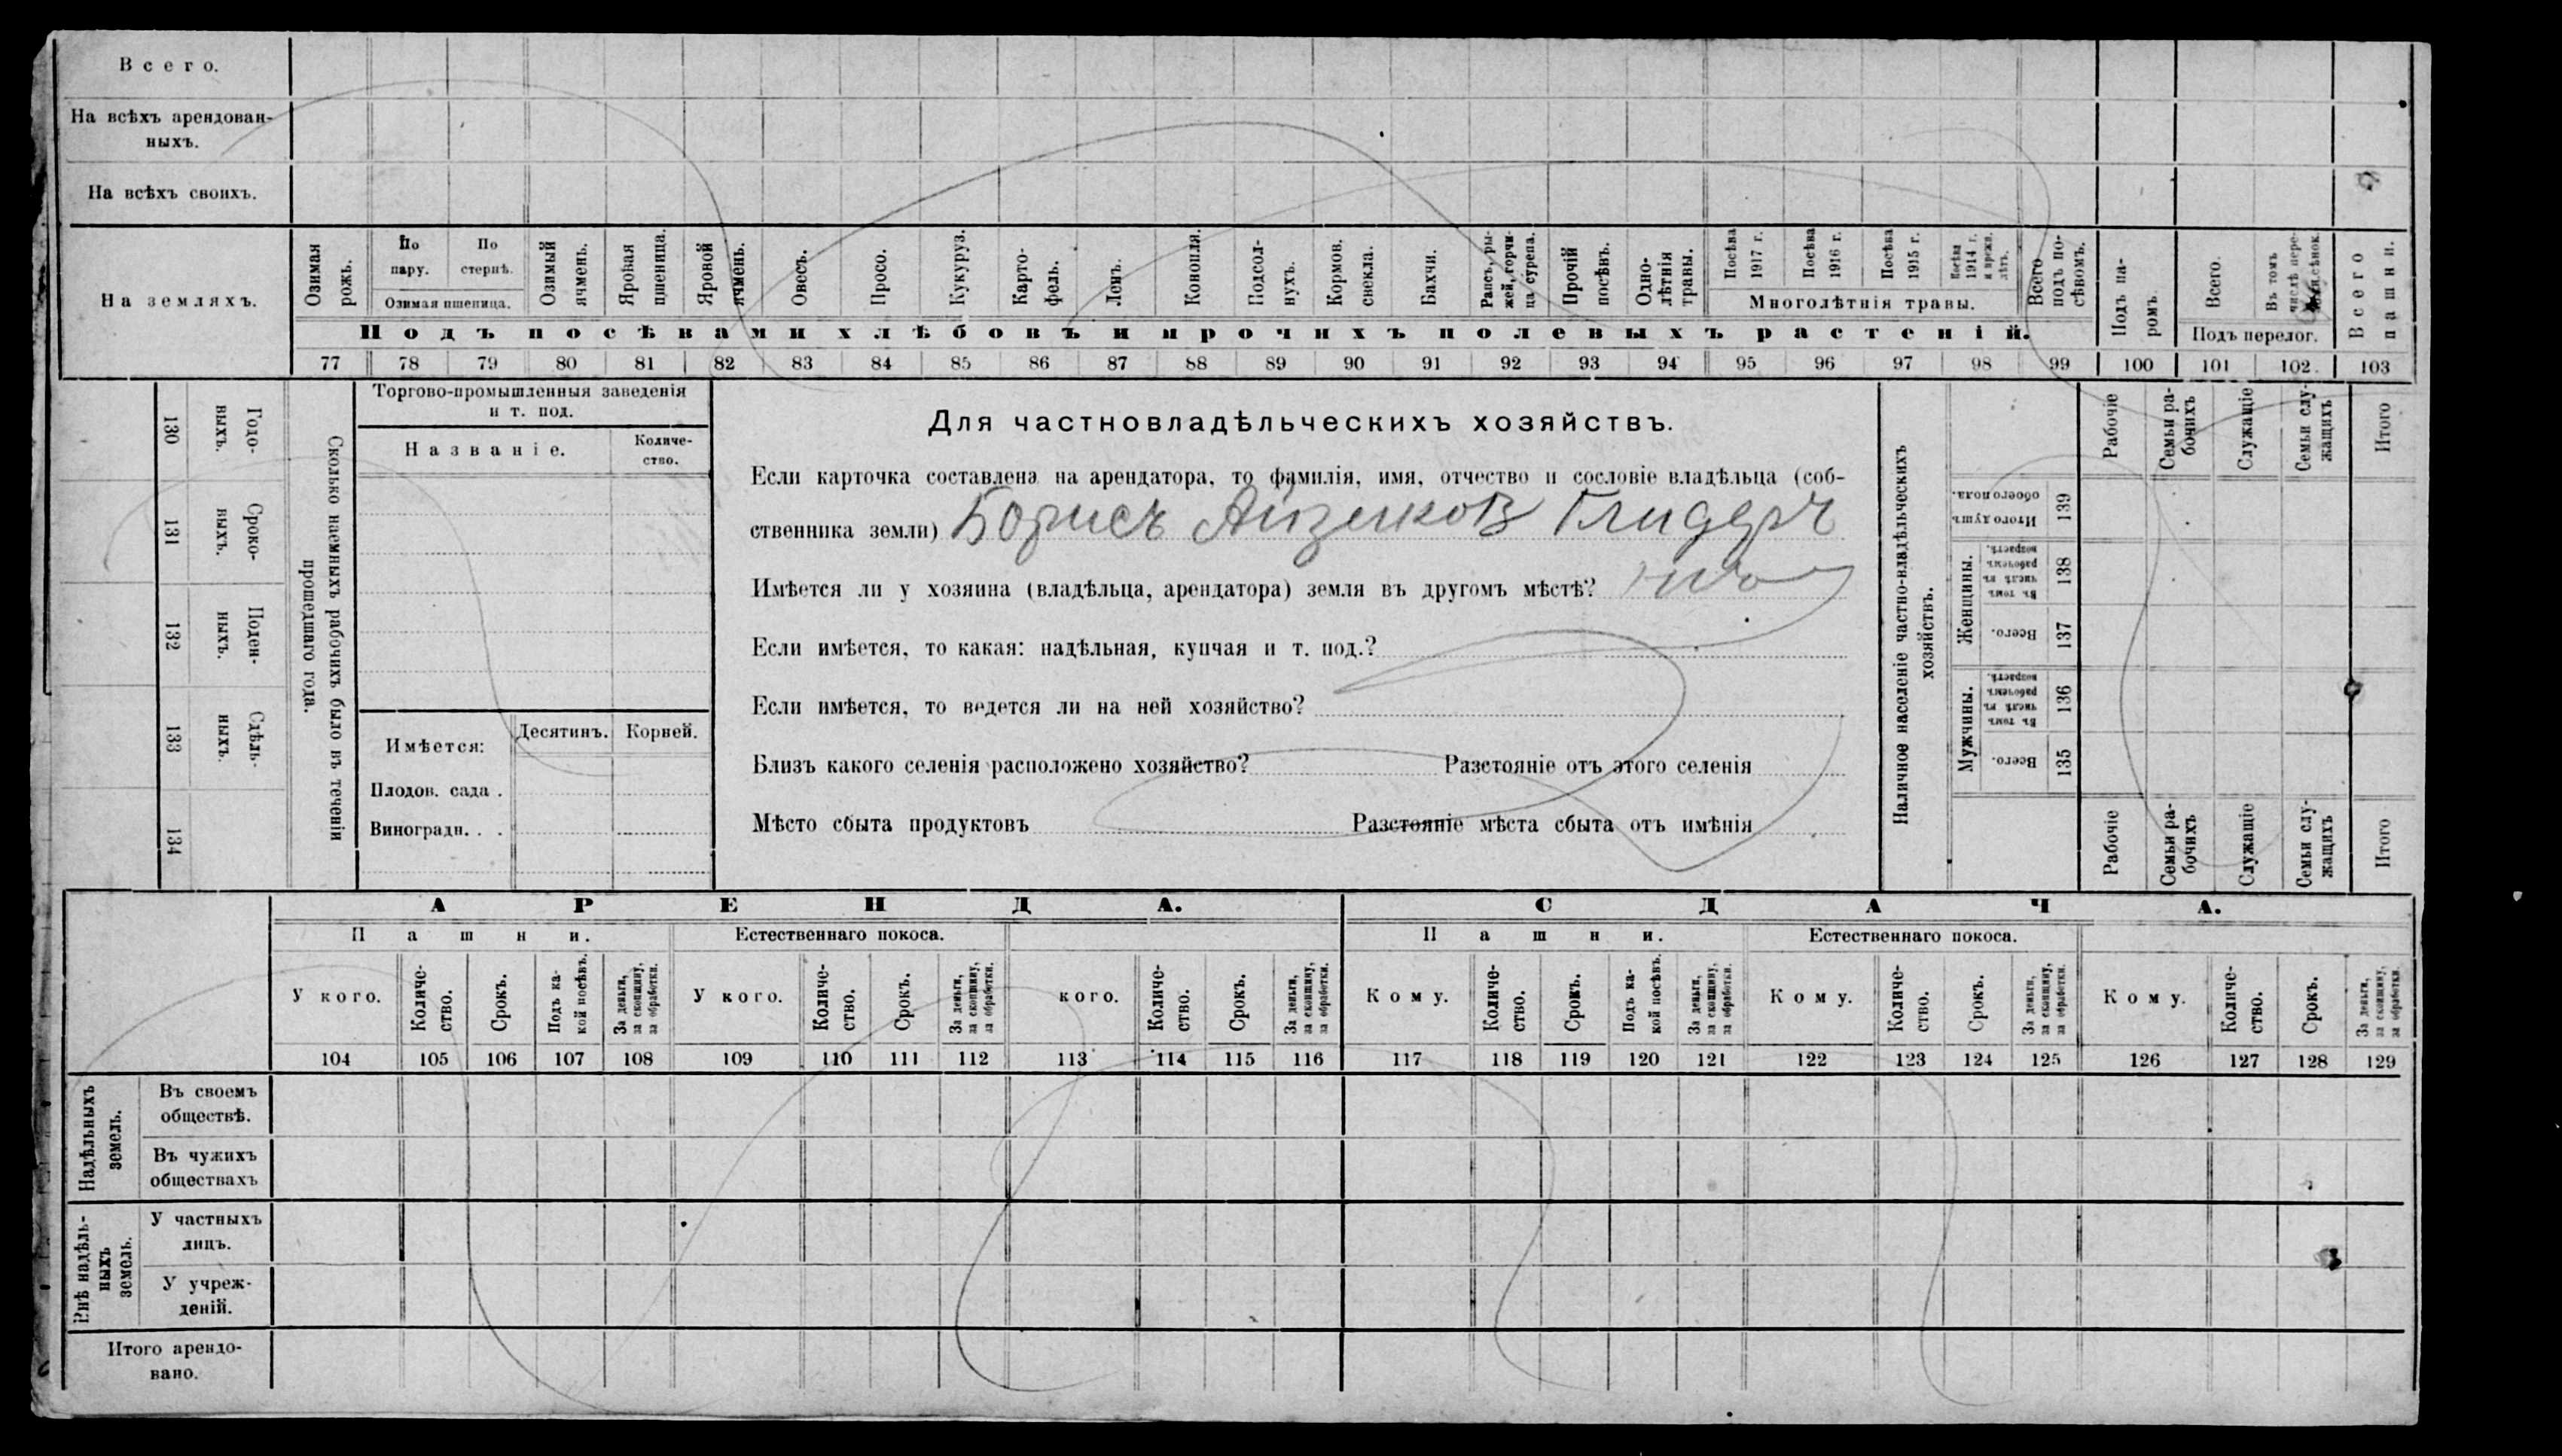 Всего.
На всѣхъ арендован-
ныхъ.
На всѣхъ своихъ.
На земляхъ.
Озимая рожь.
По пару.
По стернѣ.
Озимая пшеница.
Озимый ячмень.
Яровая пшеница.
Яровой ячмень.
Овесъ.
Просо.
Кукуруз.
Карто-
фель.
Ленъ.
Конопля.
Подсол-
нухъ.
Кормов. свекла.
Бахчи.
Рапсъ, ры-
жей, горчи-
ца сурепа.
Прочій посѣвъ.
Одно-
лѣтнія травы.
Посѣва 1917 г.
Посѣва 1916 г.
Посѣва 1915 г.
Посѣва 1914 г. и прежн. лѣтъ.
Многолѣтнія травы.
Всего подъ по-
сѣвомъ.
Подъ па-
ромъ.
Всего.
Въ томъ числѣ пере-
Подъ перелог.
Всего пашни.
Подъ посѣвами хлѣбовъ и прочихъ полевыхъ растеній.
77 78 79 80 81 82 83 84 85 86 87 88 89 90 91 92 93 94 95 96 97 98 99 100 101 102 103
130 Годо-
выхъ.
131 Сроко-
выхъ.
132 Поден-
ныхъ.
133 Сдѣль-
ныхъ.
134
Сколько наемныхъ рабочихъ было въ теченіи
прошедшаго года.
Торгово-промышленныя заведенія
и т. под.
Названіе.
Количе-
ство.
Имѣется:
Десятинъ.
Корней.
Плодов. сада .
Виноградн. . .
Для частновладѣльческихъ хозяйствъ.
Если карточка составлена на арендатора, то фамилія, имя, отчество и сословіе владѣльца (соб-
ственника земли) Борисъ Айзиков Глидеръ
Имѣется ли у хозяина (владѣльца, арендатора) земля въ другомъ мѣстѣ?
Если имѣется, то какая: надѣльная, купчая и т. под.?
Если имѣется, то ведется ли на ней хозяйство?
Близъ какого селенія расположено хозяйство? Разстояніе отъ этого селенія
Мѣсто сбыта продуктовъ Разстояніе мѣста сбыта отъ имѣнія
Наличное населеніе частно-владѣльческихъ
хозяйствъ.
Рабочіе
Семьи ра-
бочихъ
Служащіе
Семьи слу-
жащихъ
Итого
Итого душъ обоего пола. 139
Женщины.
Въ томъ числѣ въ рабочемъ возрастѣ. 138
Всего. 137
Мужчины.
Въ томъ числѣ въ рабочемъ возрастѣ. 136
Всего. 135
Рабочіе
Семьи ра-
бочихъ
Служащіе
Семьи слу-
жащихъ
Итого
АРЕНДА. СДАЧА.
Пашни. Естественнаго покоса. Пашни. Естественнаго покоса.
У кого. Количе-
ство. Срокъ. Подъ ка-
кой посѣвъ. За деньги, за скопщину, за обработки.
У кого. Количе-
ство. Срокъ. За деньги, за скопщину, за обработки.
кого. Количе-
ство. Срокъ. За деньги, за скопщину, за обработки.
Кому. Количе-
ство. Срокъ. Подъ ка-
кой посѣвъ. За деньги, за скопщину, за обработки.
Кому. Количе-
ство. Срокъ. За деньги, за скопщину, за обработки.
Кому. Количе-
ство. Срокъ. За деньги, за скопщину, за обработки.
104 105 106 107 108 109 110 111 112 113 114 115 116 117 118 119 120 121 122 123 124 125 126 127 128 129
Надѣльныхъ
земель.
Въ своемъ
обществѣ.
Въ чужихъ
обществахъ
Внѣ надѣль-
ныхъ
земель.
У частныхъ
лицъ.
У учреж-
деній.
Итого арендо-
вано.